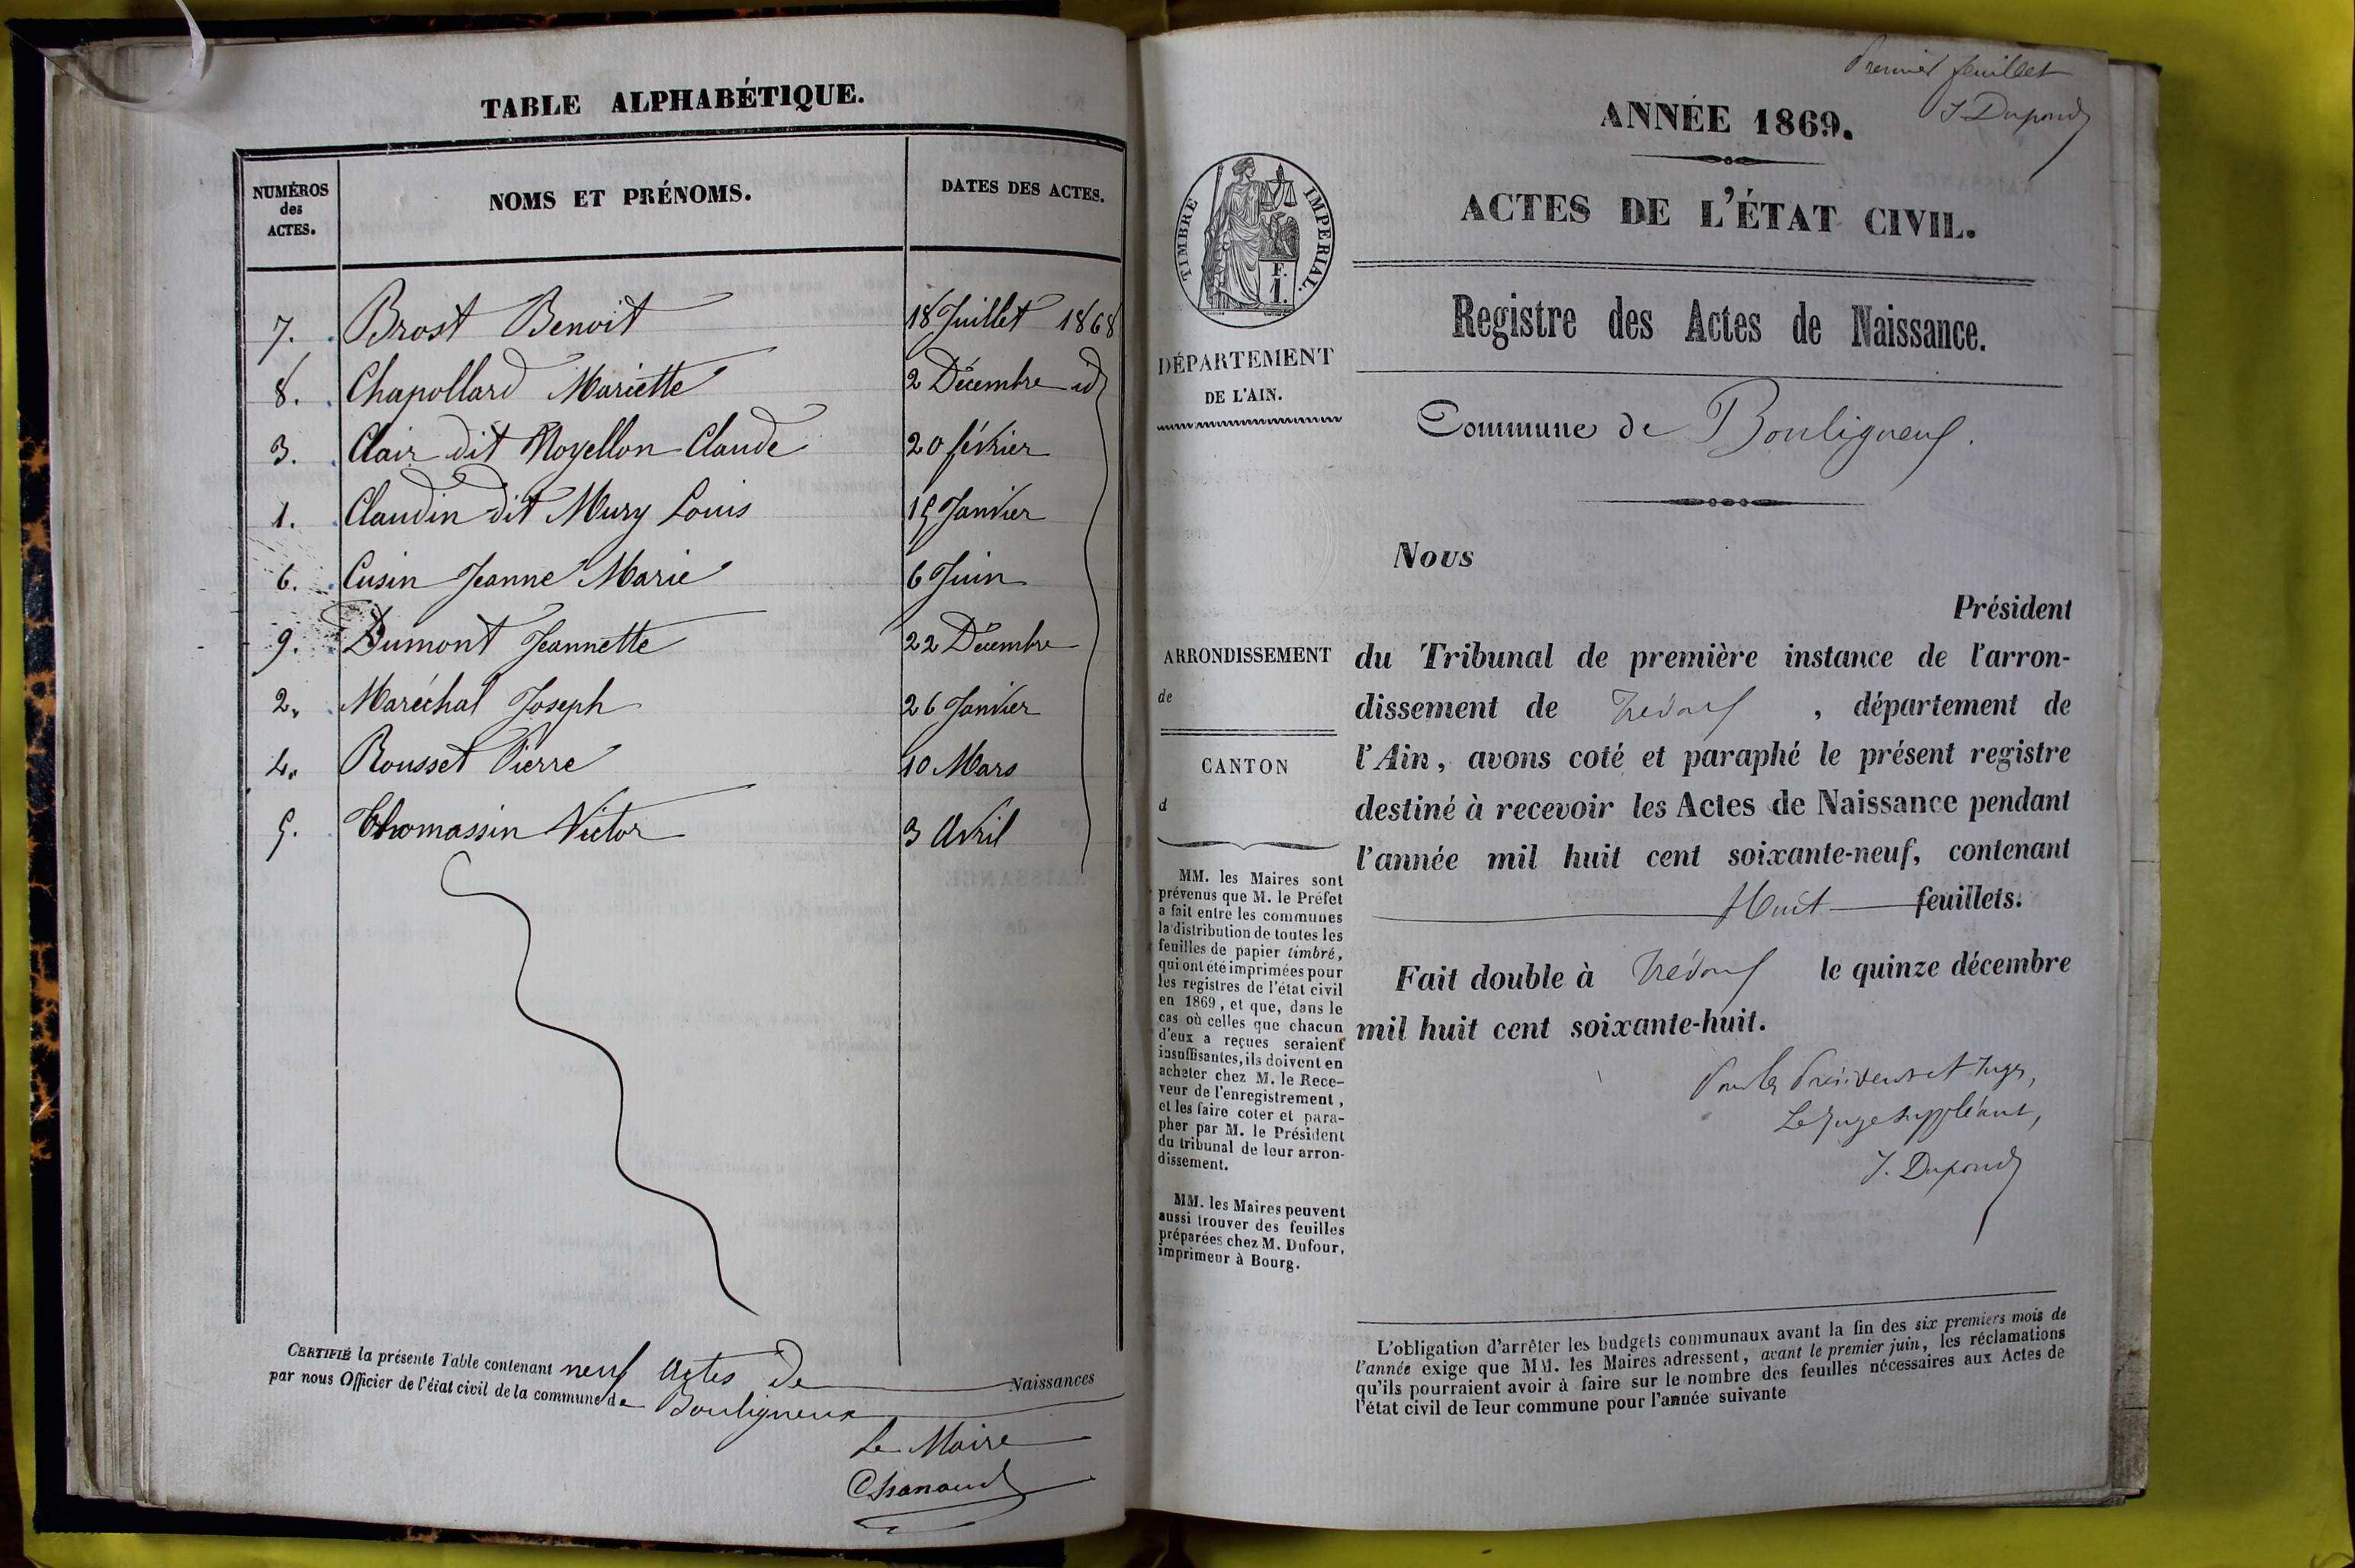 TABLE ALPHABÉTIQUE.
NUMÉROS des ACTES.
NOMS ET PRÉNOMS.
DATES DES ACTES.
7. Brost Benoit 18 Juillet 1868
8. Chapollard Mariette 2 Décembre id
3. Clair dit Moyellon Claude 20 février
1. Claudin dit Mury Louis 15 Janvier
6. Cusin Jeanne Marie 6 Juin
9. Dumont Jeannette 22 Décembre
2. Maréchal Joseph 26 Janvier
4. Rousset Pierre 10 Mars
5. Thomassin Victor 3 Avril
CERTIFIÉ la présente Table contenant neuf actes de Naissances
par nous Officier de l'état civil de la commune de Bouligneux
Le Maire
Chanaud
Premier feuillet
J. Dupond
ANNÉE 1869.
ACTES DE L'ÉTAT CIVIL.
TIMBRE IMPERIAL.
F.
1.
Registre des Actes de Naissance.
DÉPARTEMENT
DE L'AIN.
Commune de Bouligneux.
Nous
Président
ARRONDISSEMENT
de
CANTON
d
du Tribunal de première instance de l'arron-
dissement de Trévoux, département de
l'Ain, avons coté et paraphé le présent registre
destiné à recevoir les Actes de Naissance pendant
l'année mil huit cent soixante-neuf, contenant
Huit feuillets.
Fait double à Trévoux le quinze décembre
mil huit cent soixante-huit.
Pour les Président et Juges,
Le Juge suppléant,
J. Dupond
MM. les Maires sont
prévenus que M. le Préfet
a fait entre les communes
la distribution de toutes les
feuilles de papier timbré,
qui ont été imprimées pour
les registres de l'état civil
en 1869, et que, dans le
cas où celles que chacun
d'eux a reçues seraient
insuffisantes, ils doivent en
acheter chez M. le Rece-
veur de l'enregistrement,
et les faire coter et para-
pher par M. le Président
du tribunal de leur arron-
dissement.
MM. les Maires peuvent
aussi trouver des feuilles
préparées chez M. Dufour,
imprimeur à Bourg.
L'obligation d'arrêter les budgets communaux avant la fin des six premiers mois de
l'année exige que MM. les Maires adressent, avant le premier juin, les réclamations
qu'ils pourraient avoir à faire sur le nombre des feuilles nécessaires aux Actes de
l'état civil de leur commune pour l'année suivante